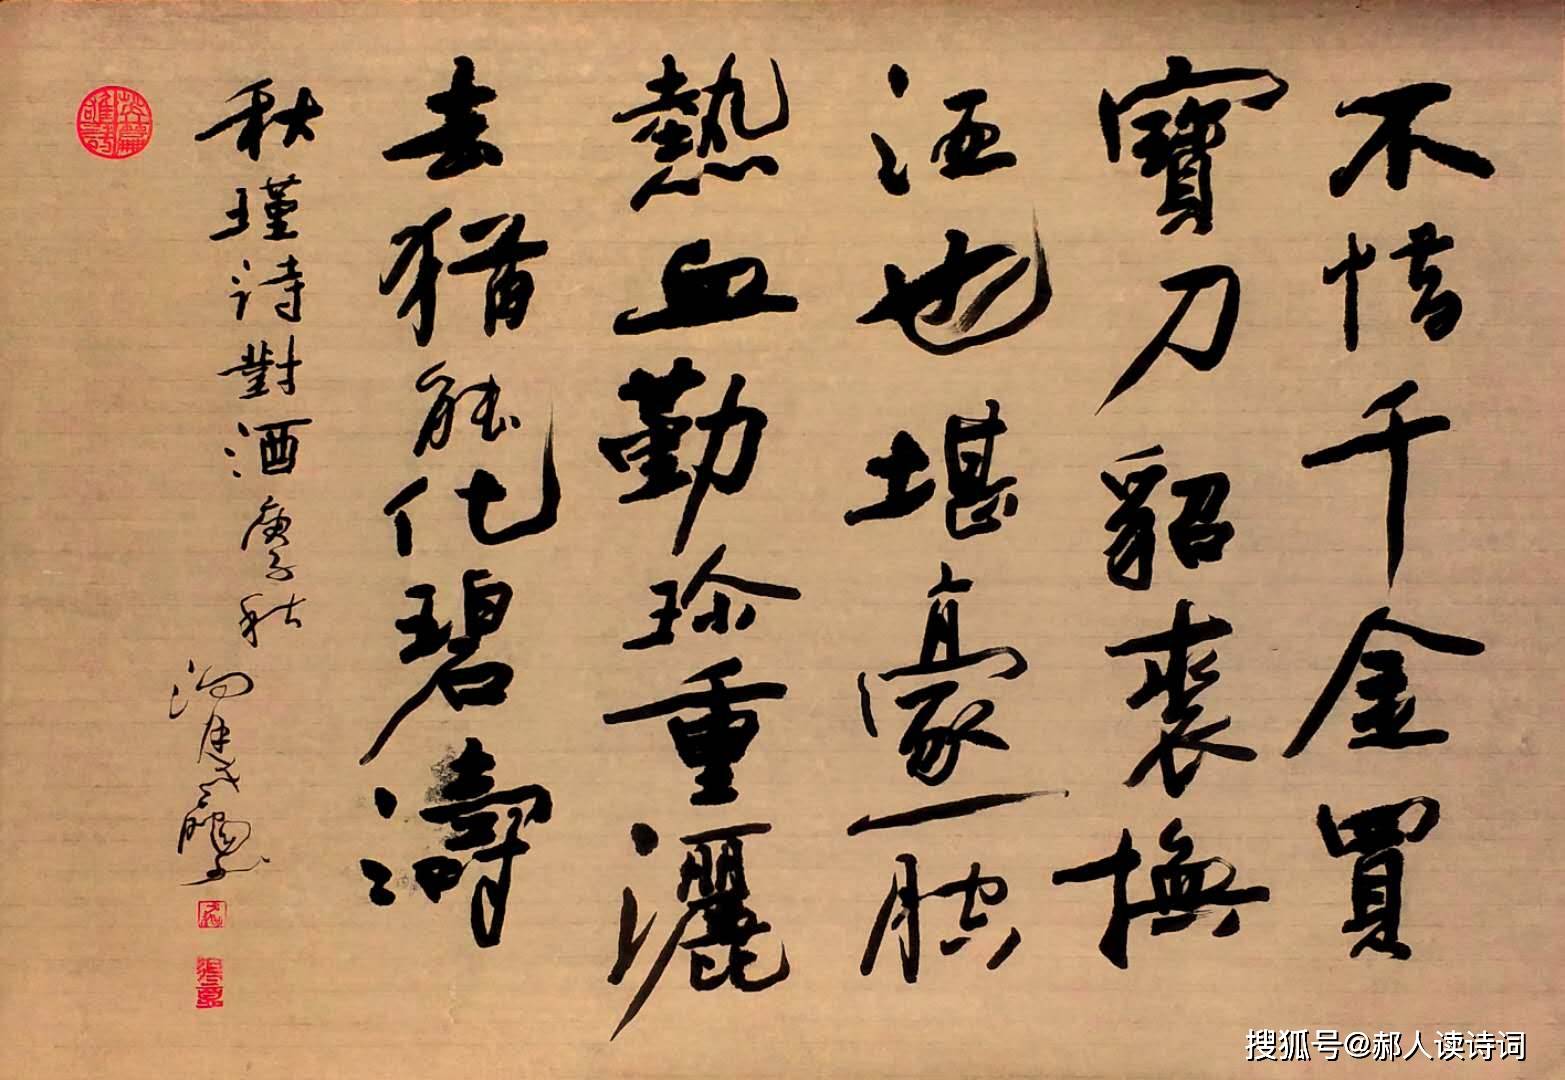 不惜千金買
寶刀貂裘撫
酒也堪豪一腔
熱血勤珍重灑
去猶能化碧濤
秋瑾诗對酒庚子秋
搜狐号@郝人读诗词